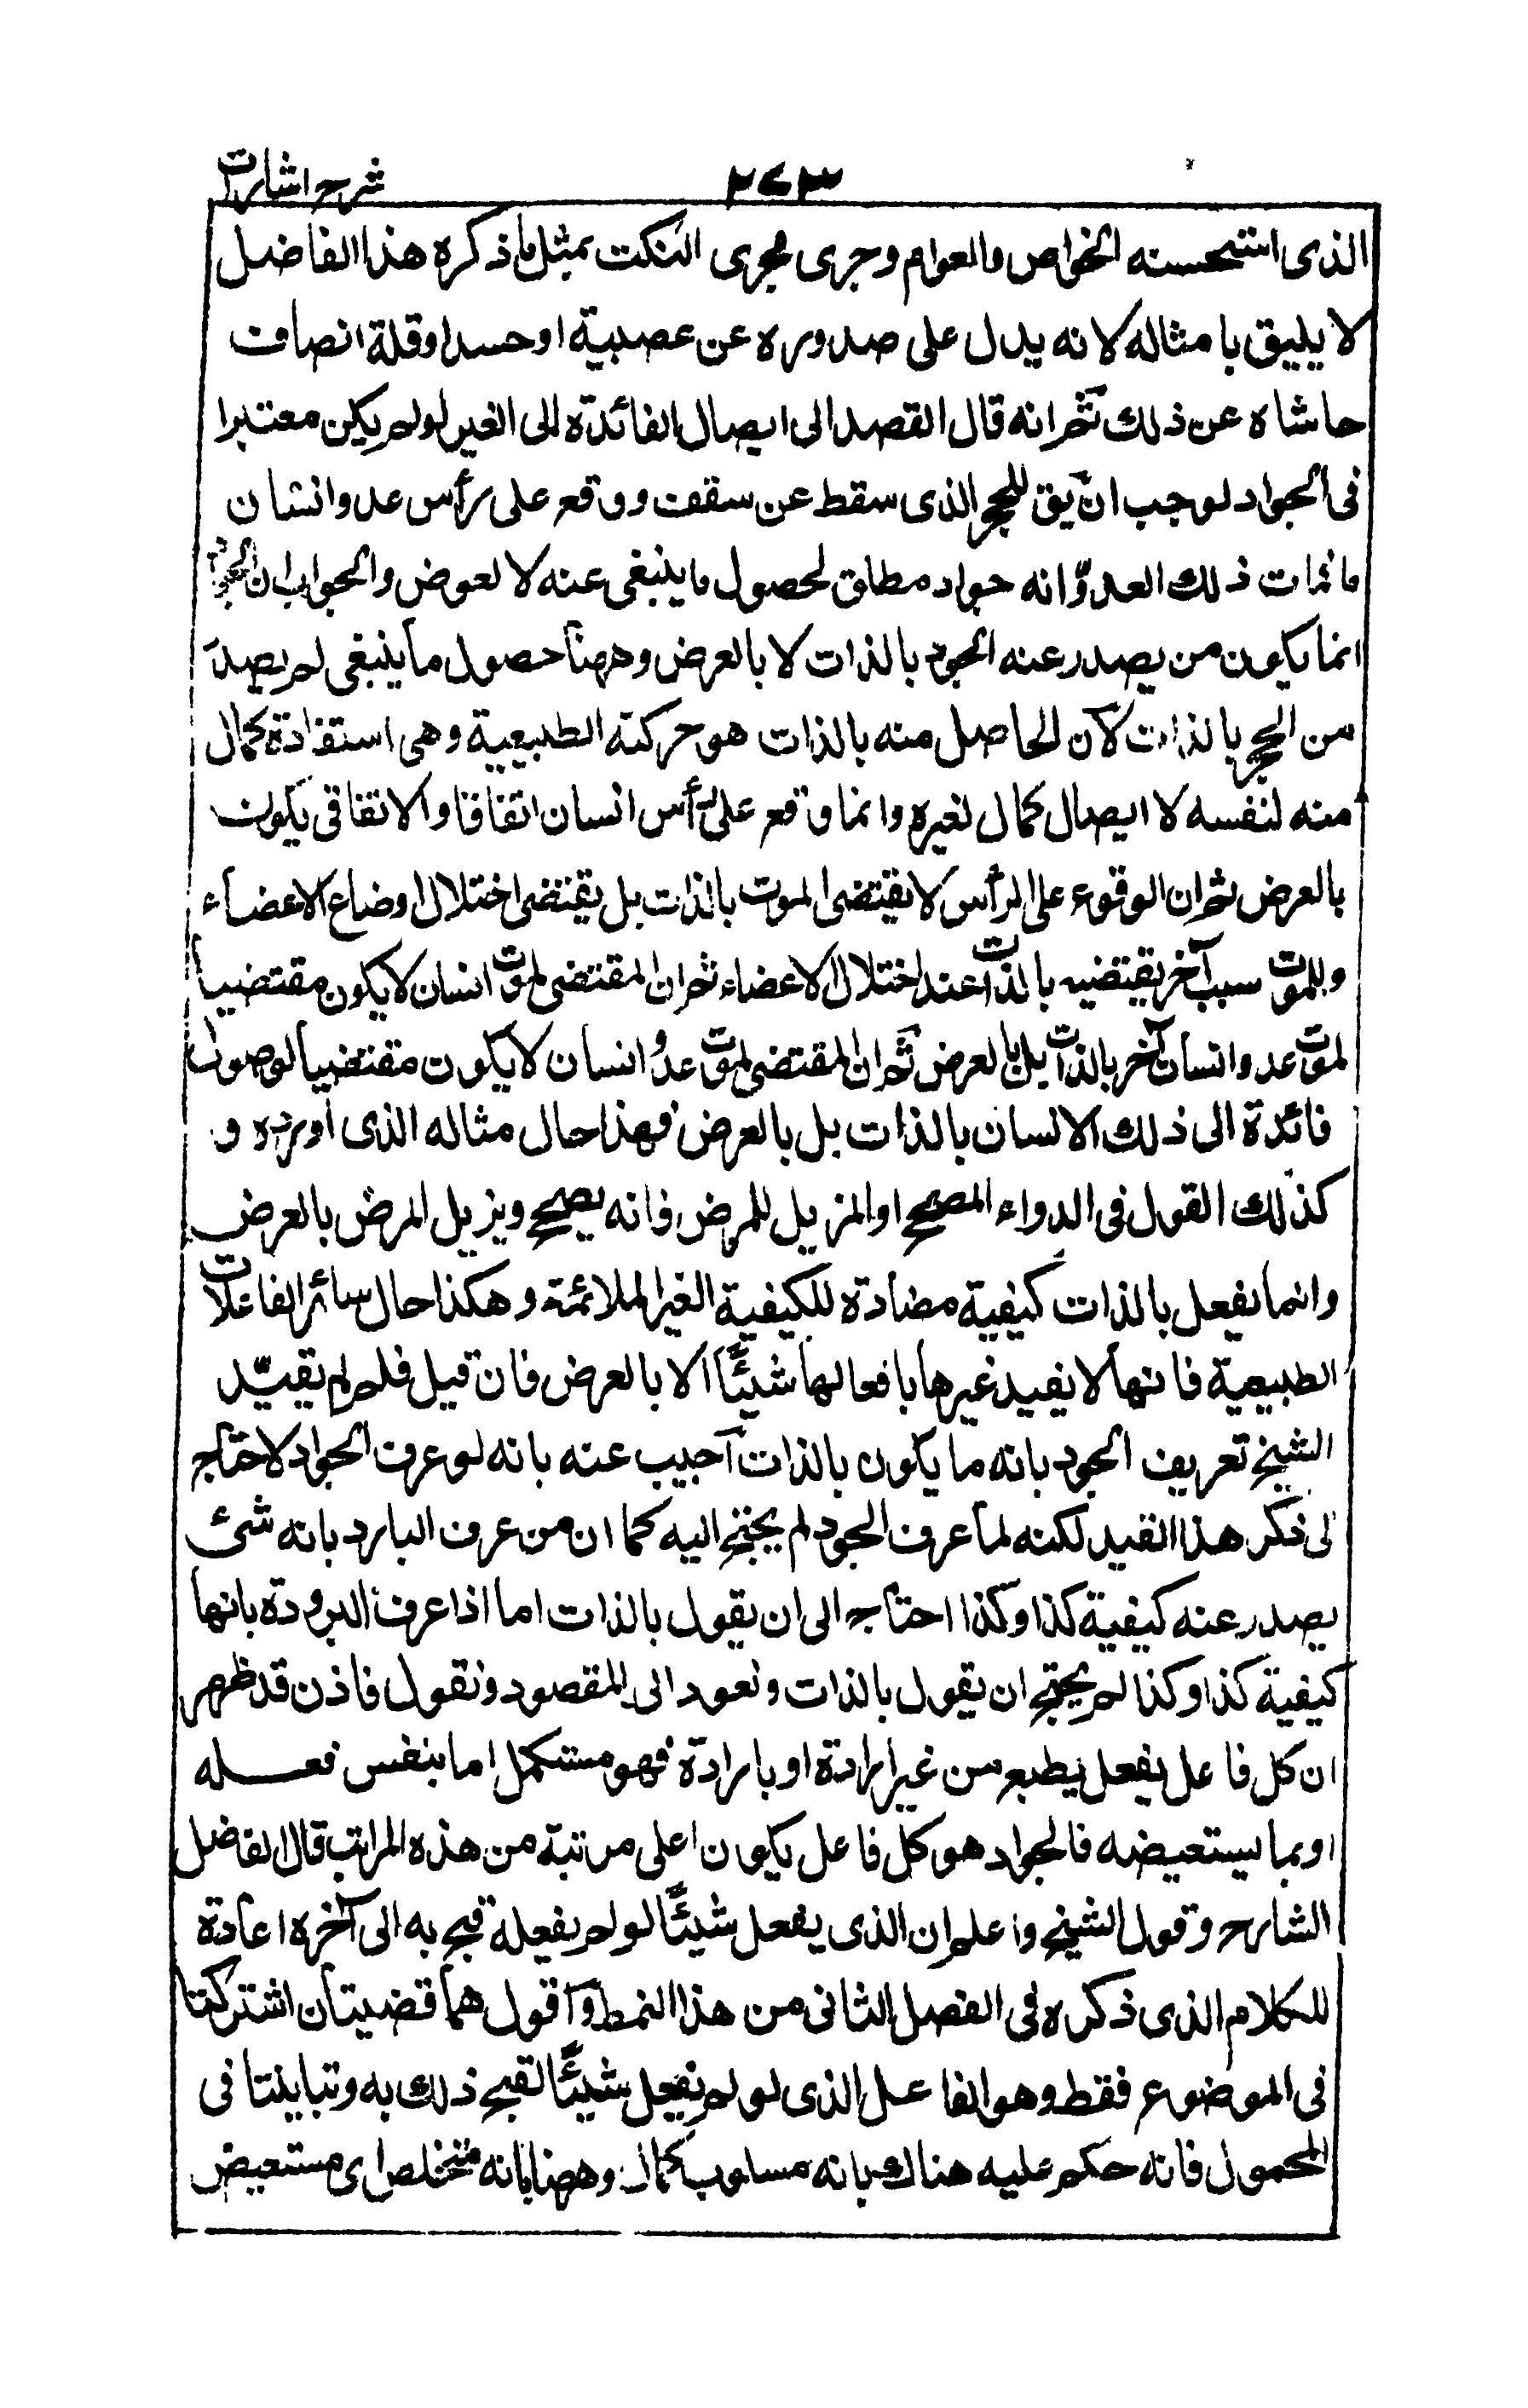 شرح اشارات
٢٧٣
الذى استحسنه الخواص والعوام وجرى مجرى النكت بمثل ما ذكره هذا الفاضل
لا يليق بامثاله لانه يدل على صدوره عن عصبية او حسد او قلة انصاف
حاشاه عن ذلك ثم انه قال القصد الى ايصال الفائدة الى الغير لو لم يكن معتبرا
فى الجواد لوجب ان يق للحجر الذى سقط عن سقف ووقع على رأس عدو انسان
ما فمات ذلك العدوّ انه جواد مطلق لحصول ما ينبغى عنه لا لعوض والجواب ان الجواد
انما يكون من يصدر عنه الجود بالذات لا بالعرض وههنا حصول ما ينبغى لم يصدر
من الحجر بالذات لان الحاصل منه بالذات هو حركته الطبيعية وهى استفادة كمال
منه لنفسه لا ايصال كمال لغيره وانما وقع على رأس انسان اتفاقا والاتفاقى يكون
بالعرض ثم ان الوقوع على الرأس لا يقتضى الموت بالذات بل يقتضى اختلال اوضاع الاعضاء
وللموت سبب آخر يقتضيه بالذات عند اختلال الاعضاء ثم ان المقتضى لموت انسان لا يكون مقتضيا
لموت عدو انسان آخر بالذات بل بالعرض ثم ان المقتضى لموت عدو انسان لا يكون مقتضيا لوصول
فائدة الى ذلك الانسان بالذات بل بالعرض فهذا حال مثاله الذى اورده و
كذلك القول فى الدواء المصحح او المزيل للمرض فانه يصحح ويزيل المرض بالعرض
وانما يفعل بالذات كيفية مضادة للكيفية الغير الملائمة وهكذا حال سائر الفاعلات
الطبيعية فانها لا يفيد غيرها بافعالها شيئًا الا بالعرض فان قيل فلم لم يقيّد
الشيخ تعريف الجود بانه ما يكون بالذات آجيب عنه بانه لو عرف الجواد لاحتاج
الى ذكر هذا القيد لكنه لما عرف الجود لم يحتج اليه كما ان من عرف البارد بانه شئ
يصدر عنه كيفية كذا وكذا احتاج الى ان يقول بالذات اما اذا عرف البرودة بانها
كيفية كذا وكذا لم يحتج ان يقول بالذات ونعود الى المقصود ونقول فاذن قد ظهر
ان كل فاعل يفعل بطبع من غير ارادة او بارادة فهو مستكمل اما بنفس فعله
او بما يستعيضه فالجواد هو كل فاعل يكون اعلى مرتبة من هذه المراتب قال الفاضل
الشارح وقول الشيخ واعلم ان الذى يفعل شيئًا لو لم يفعله قبح به الى آخره اعادة
للكلام الذى ذكره فى الفصل الثانى من هذا النمط وآقول هما قضيتان اشتركتا
فى الموضوع فقط وهو الفاعل الذى لو لم يفعل شيئًا لقبح ذلك به وتباينتا فى
المحمول فانه حكم عليه هناك بانه مسلوب كمال وههنا بانه متخلص اى مستعيض